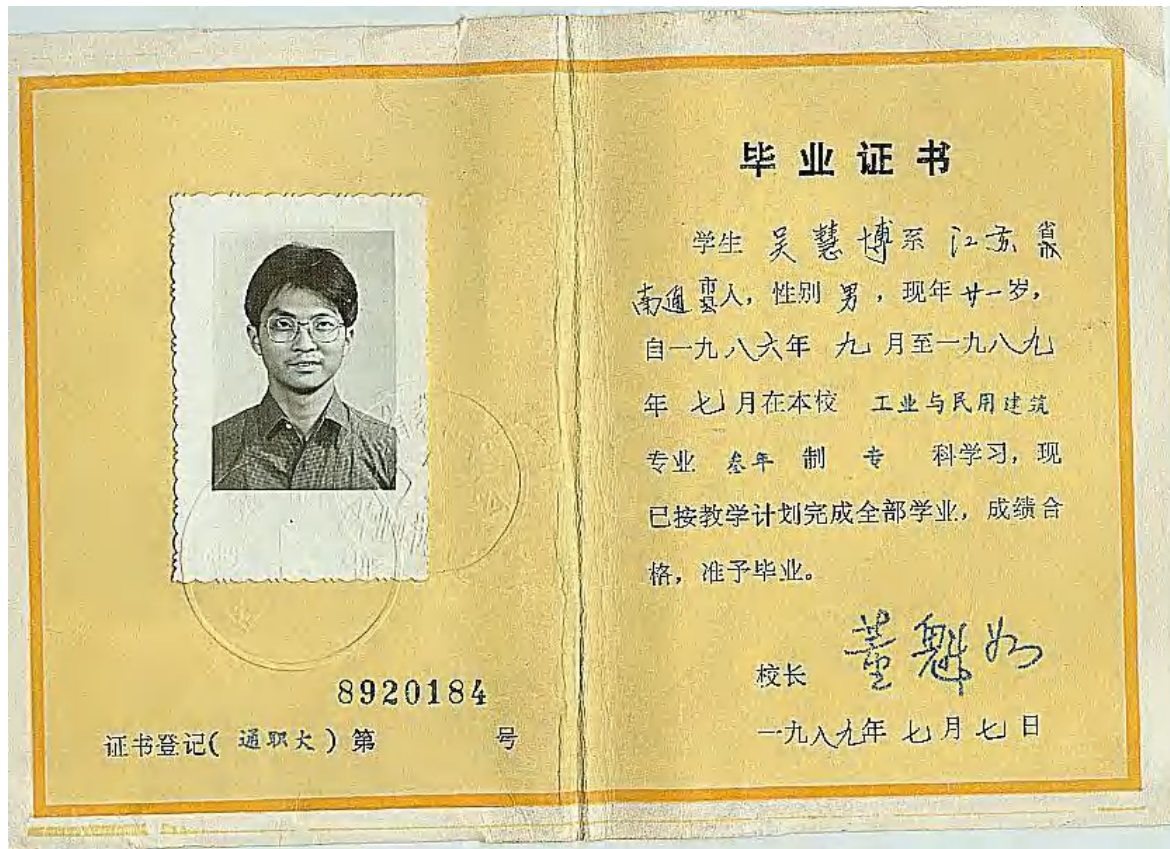 8920184
证书登记( 通职大 ) 第 号
毕业证书
学生 吴慧博 系 江苏 省市
南通 市县人，性别 男，现年廿一岁，
自一九八六年 九月至一九八九
年 七月在本校 工业与民用建筑
专业 叁年 制 专 科学习，现
已按教学计划完成全部学业，成绩合
格，准予毕业。
校长 董魁如
一九八九年 七月七日